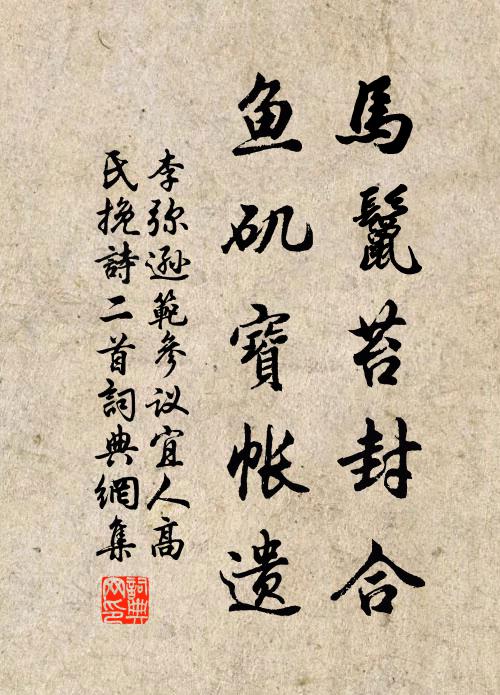 馬鬣苔封合
鱼矶寶帐遗
李弥逊範參议宜人高
氏挽詩二首詞典網集
詞典网印